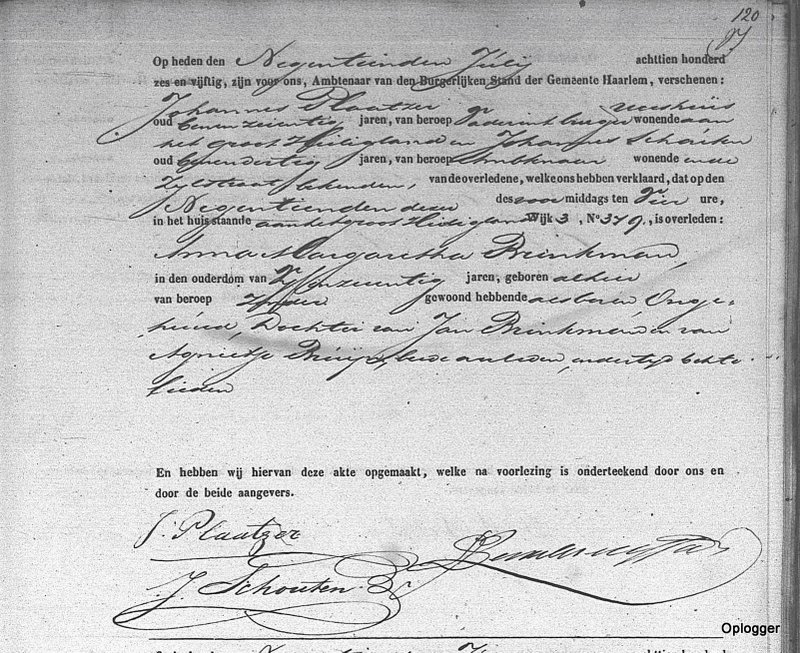 120
Op heden den Negentienden Julij achttien honderd
zes en vijftig, zijn voor ons, Ambtenaar van den Burgerlijken Stand der Gemeente Haarlem, verschenen:
Johannes Plaatzer
oud zevenzestig jaren, van beroep weeshuis wonende aan
het groot Heiligland en Johannes Schouten
oud jaren, van beroep wonende in de
Zylstraat, bekenden, van de overledene, welke ons hebben verklaard, dat op den
Negentienden dezer des voor middags ten Vier ure,
in het huis staande aan het groot Heiligland Wijk 3, No 379, is overleden:
Anna Margaretha Brinkman,
in den ouderdom van jaren, geboren alhier
van beroep Zonder gewoond hebbende alhier Onge-
huwd, Dochter van Jan Brinkman en van
Agnietje beide overleden, echte
lieden
En hebben wij hiervan deze akte opgemaakt, welke na voorlezing is onderteekend door ons en
door de beide aangevers.
J. Plaatzer
J. Schouten
achttien honderd
Oplogger